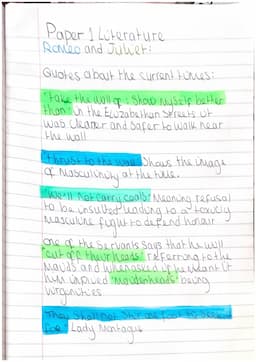 Paper 1 Literature
Romeo and Juliet:
Quotes about the current times:
"take the wall of: Show myself better
than" in the Elizabethan Streets it
was Cleaner and Safer to walk near
the wall
"Thrust to the wall" Shows the image
of masculinity at the time.
"We'll not carry coals" Meaning refusal
to be insulted leading to a toxicly
masculine fight to defend honour
One of the Servants Says that he will
"cut off their heads" referring to the
maids and when asked if he meant it
him implied "maidenheads" being
virginities.
"They Shall not Stir one foot to Seek a
foe" Lady Montague